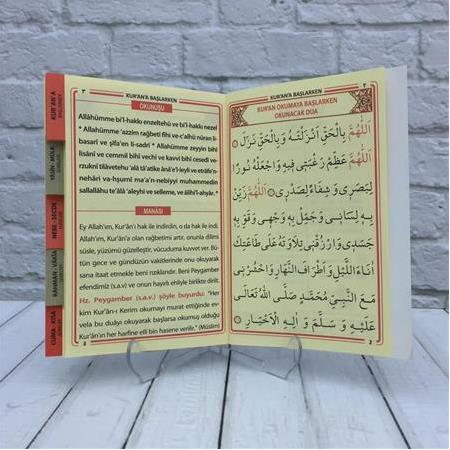 KUR'AN'A
YASİN - MÜLK
NEBE - SECDE
RAHMAN - VAKIA
CUMA - KISA
٣
KUR'AN'A BAŞLARKEN
OKUNUŞU
Allâhümme bi'l-hakkı enzeltehû ve bi'l-hakkı nezel
* Allâhümme 'azzim rağbetî fîhi ve-c'alhü nûran li-
basarî ve şifa'en li-sadrî * Allâhümme zeyyin bihî
lisânî ve cemmil bihî vechî ve kavvi bihî cesedî ve-
rzuknî tilâvetehu 'alâ tâ'atike ânâ'e'l-leyli ve etrâfe'n-
nehâri va-hşurnî ma'a'n-nebiyyi muhammedin
sallallâhu te'âlâ 'aleyhi ve selleme, ve âlihi'l-ahyâr. *
MANASI
Ey Allah'ım, Kur'ân'ı hak ile indirdin, o da hak ile indi.
Allah'ım, Kur'ân'a olan rağbetimi artır, onunla dilimi
süsle, yüzümü güzelleştir, vücuduma kuvvet ver. Bü-
tün gece ve gündüzün vakitlerinde onu okuyarak
sana itaat etmekle beni rızıklandır. Beni Peygamber
efendimiz (s.a.v) ve onun hayırlı ehliyle birlikte dirilt.
Hz. Peygamber (s.a.v.) şöyle buyurdu: "Her
kim Kur'ân-ı Kerim okumayı murat ettiğinde ev-
vela bu duâyı okuyarak başlarsa okumuş olduğu
Kur'ân'ın her harfine elli bin hasene verilir." (Müslim)
3
٢
KUR'AN'A BAŞLARKEN
KUR'AN OKUMAYA BAŞLARKEN
OKUNACAK DUA
اَللّٰهُمَّ بِالْحَقِّ اَنْزَلْتَهُ وَبِالْحَقِّ نَزَلَ ۞
اَللّٰهُمَّ عَظِّمْ رَغْبَتِى فِيهِ وَاجْعَلْهُ نُورًا
لِبَصَرِى وَشِفَاءً لِصَدْرِى ۞ اَللّٰهُمَّ زَيِّنْ
بِهِ لِسَانِى وَجَمِّلْ بِهِ وَجْهِى وَقَوِّ بِهِ
جَسَدِى وَارْزُقْنِى تِلَاوَتَهُ عَلٰى طَاعَتِكَ
اٰنَاءَ اللَّيْلِ وَاَطْرَافَ النَّهَارِ وَاحْشُرْنِى
مَعَ النَّبِيِّ مُحَمَّدٍ صَلَّى اللّٰهُ تَعَالٰى
عَلَيْهِ وَسَلَّمَ وَاٰلِهِ الْاَخْيَارِ ۞
2